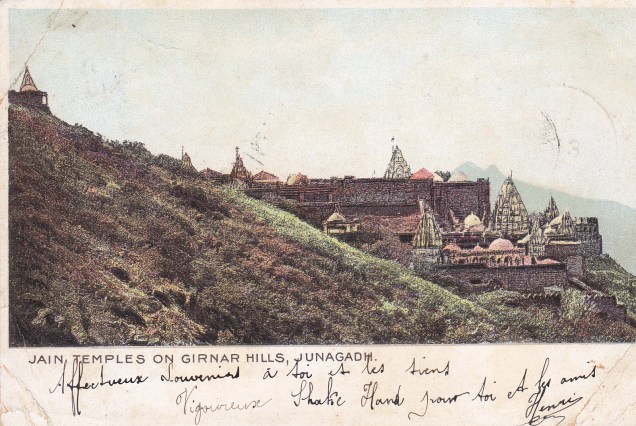 JAIN TEMPLES ON GIRNAR HILLS, JUNAGADH.
Affectueux Souvenirs à toi et les tiens
Vigoureux Shake Hand pour toi et les amis
Henri